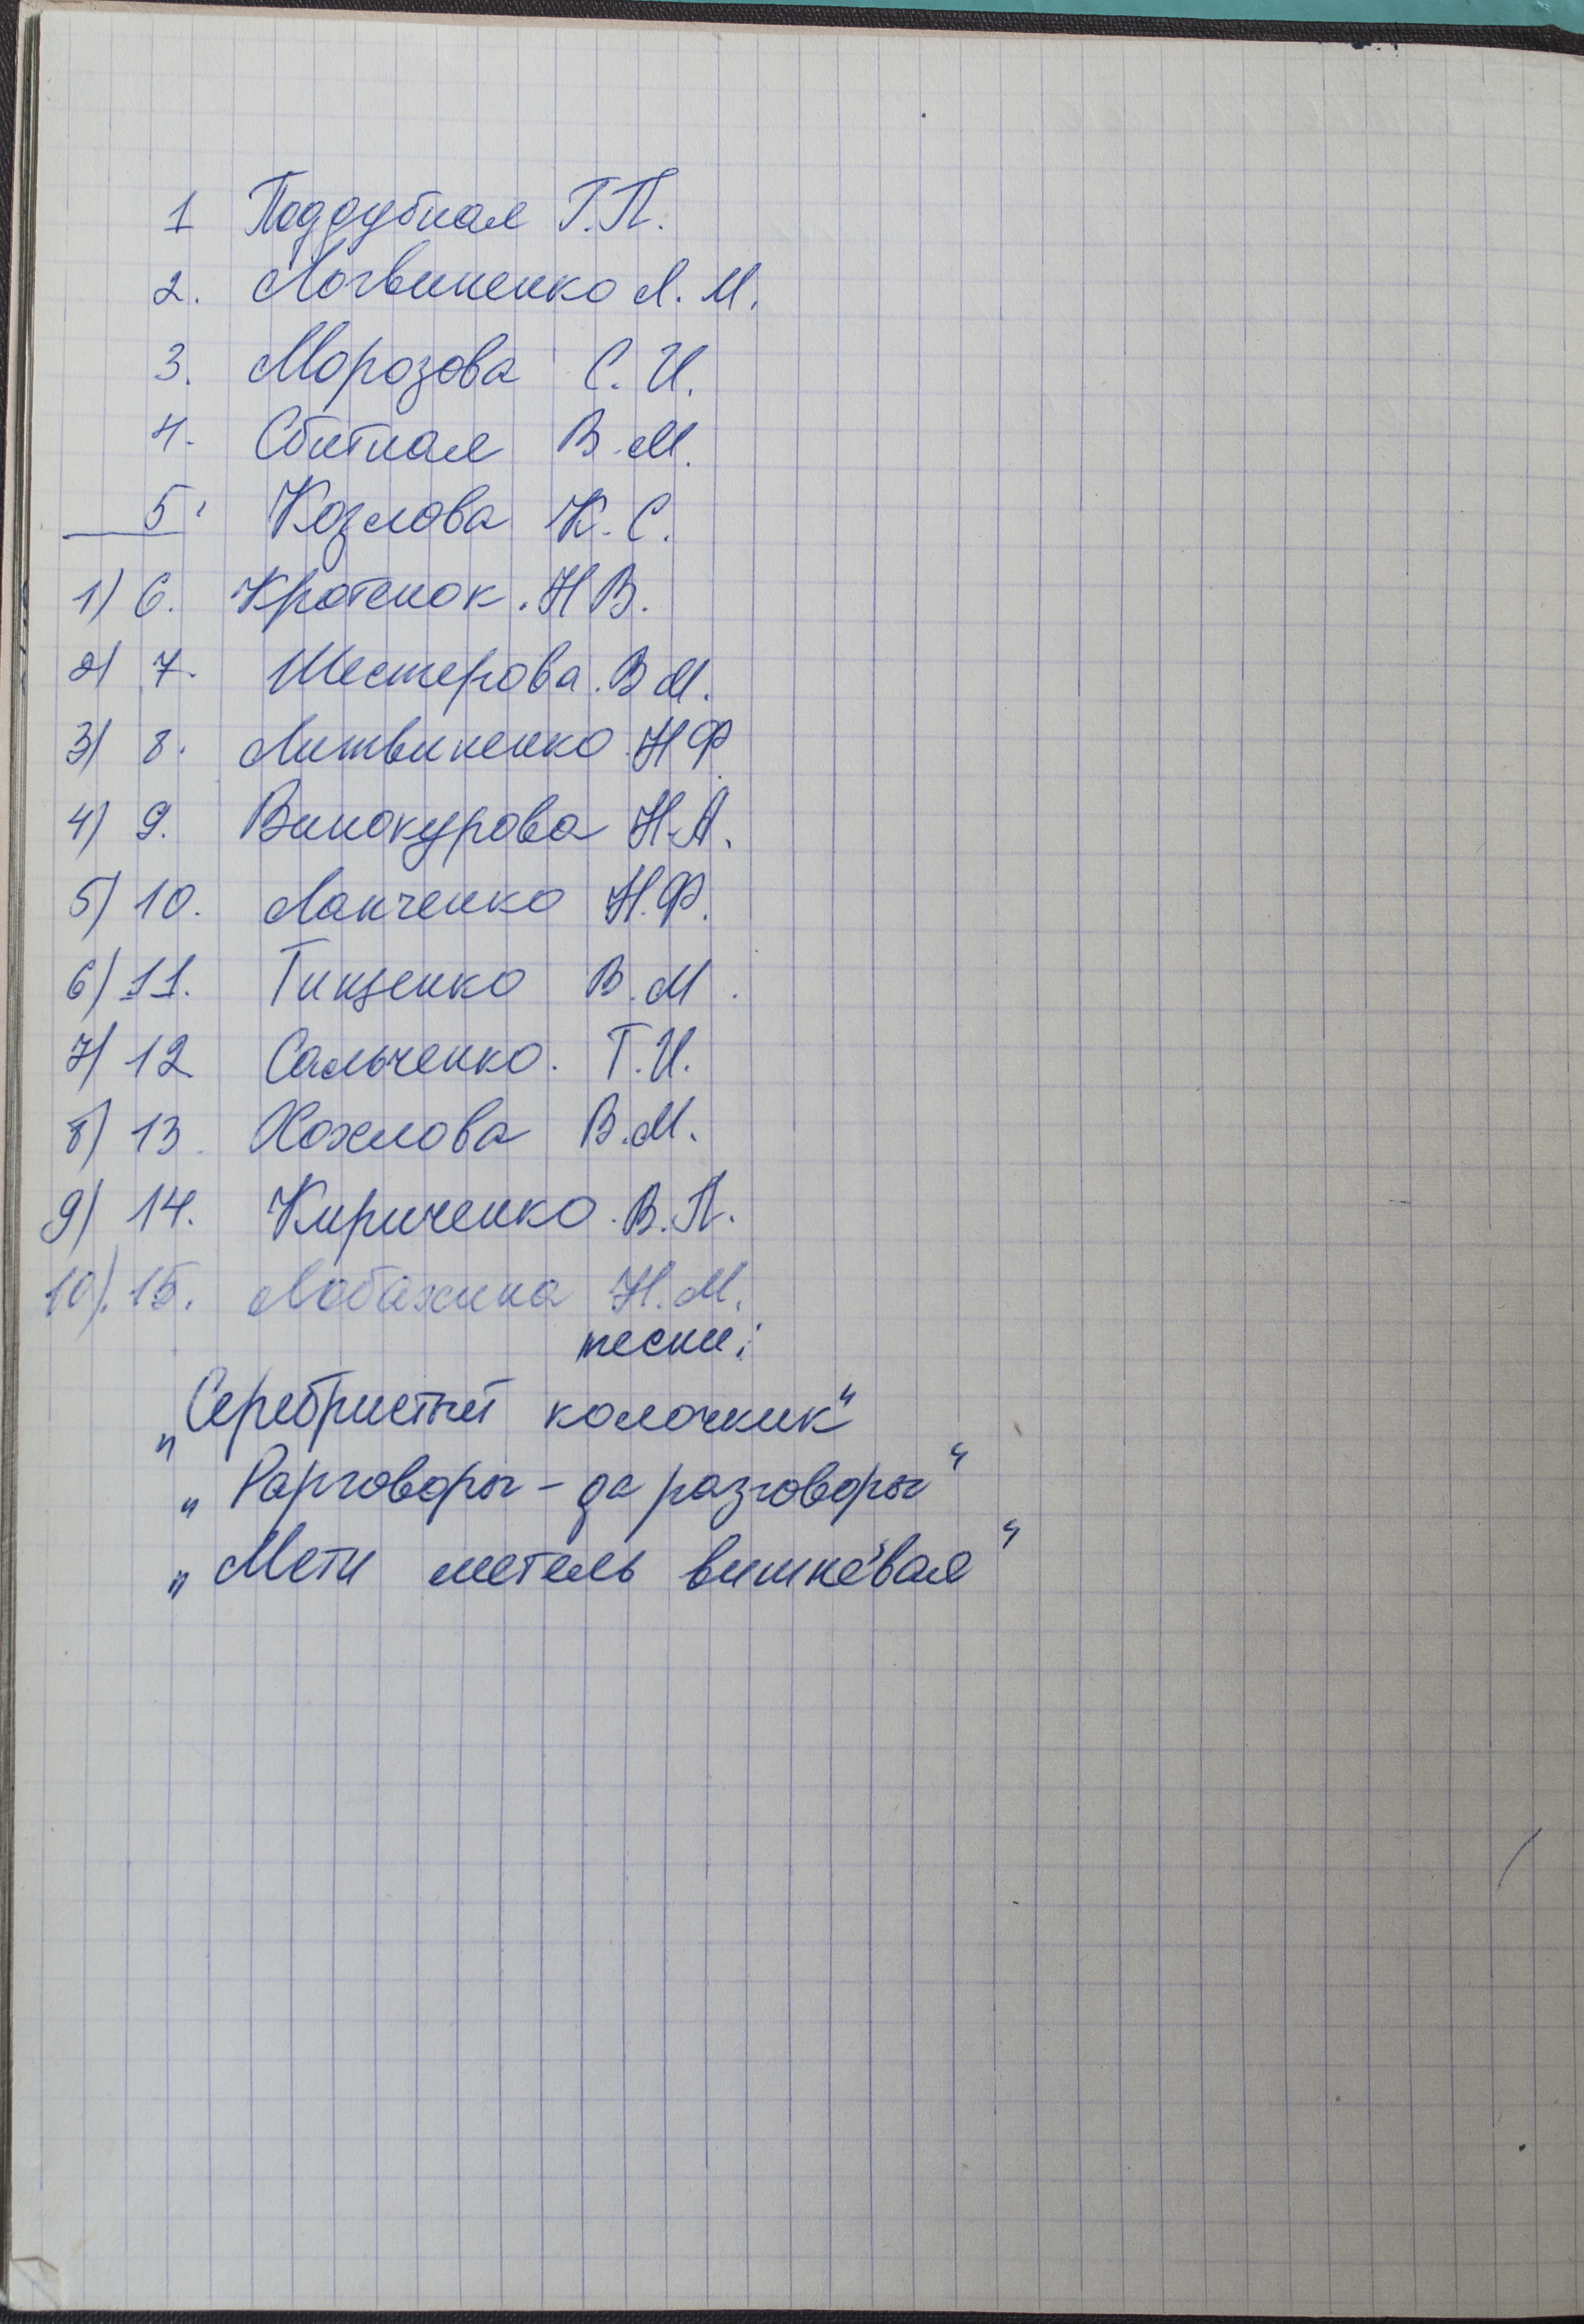 1 Поддубная Г.П.
2. Логвиненко Л. М.
3. Морозова С. И.
4. Сбитная В. М.
5. Козлова К. С.
1) 6. Кротенок. Н В.
2) 7. Шестерова. В М.
3) 8. Литвиненко. Н Ф.
4) 9. Винокурова Н.А.
5) 10. Ланченко Н.Ф.
6) 11. Тищенко В. М.
7) 12 Сальченко. Т.И.
8) 13. Хохлова В.М.
9) 14. Кириченко. В.П.
10). 15. Лобахина Н.М.
песни:
„Серебристый колочкик"
„Разговоры - да разговоры"
„Мети метель вишнёвая"